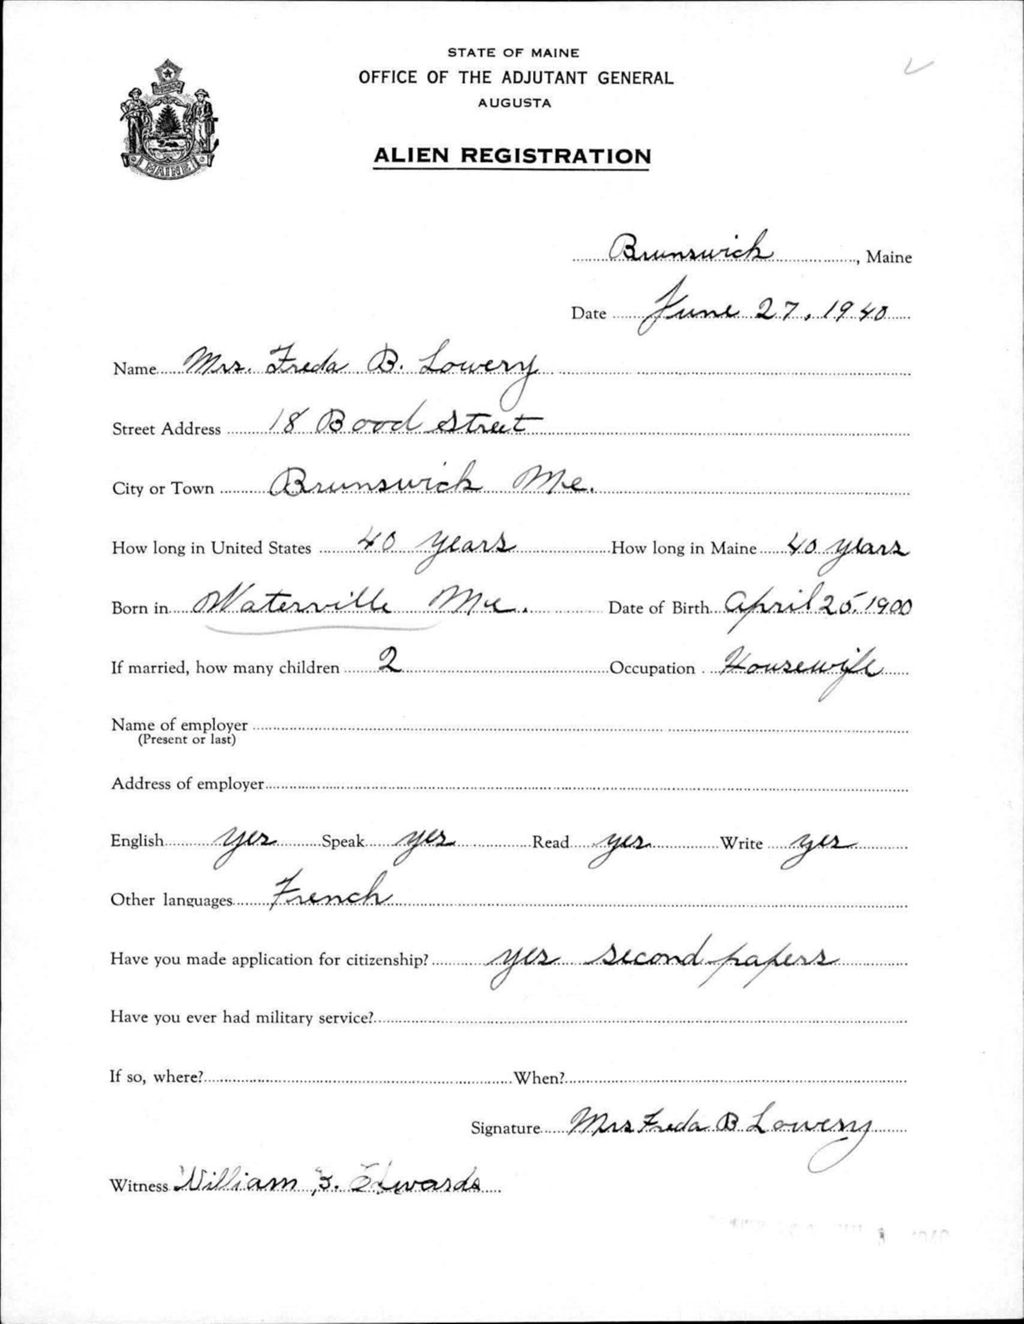 STATE OF MAINE
OFFICE OF THE ADJUTANT GENERAL
AUGUSTA
ALIEN REGISTRATION
MAINE
Brunswick, Maine
Date June 27, 1940
Name Mrs. Freda B. Lowery
Street Address 18 Bood Street
City or Town Brunswick Me.
How long in United States 40 years How long in Maine 40 years
Born in Waterville Me. Date of Birth April 25, 1900
If married, how many children 2 Occupation Housewife
Name of employer
(Present or last)
Address of employer
English yes Speak yes Read yes Write yes
Other languages French
Have you made application for citizenship? yes second papers
Have you ever had military service?
If so, where? When?
Signature Mrs Freda B Lowery
Witness William Edwards